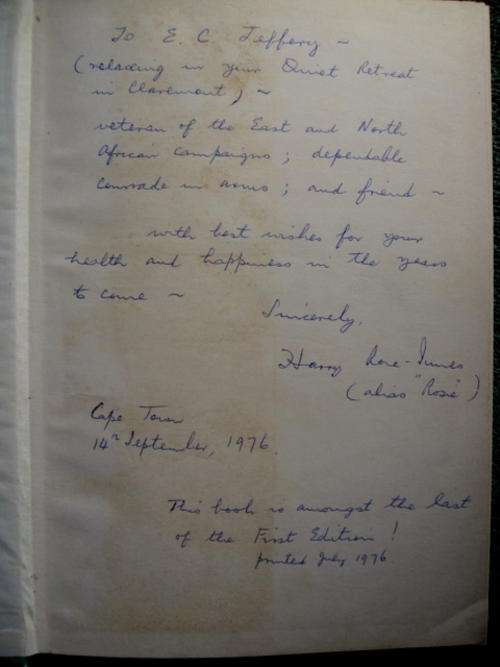 To E. C. Jeffery ~
(relaxing in your Quiet Retreat
in Claremont) ~
veteran of the East and North
African campaigns; dependable
comrade in arms; and friend ~
with best wishes for your
health and happiness in the years
to come ~
Sincerely,
Harry Rose-Innes
(alias "Rosie")
Cape Town
14th September, 1976.
This book is amongst the last
of the First Edition!
printed July 1976